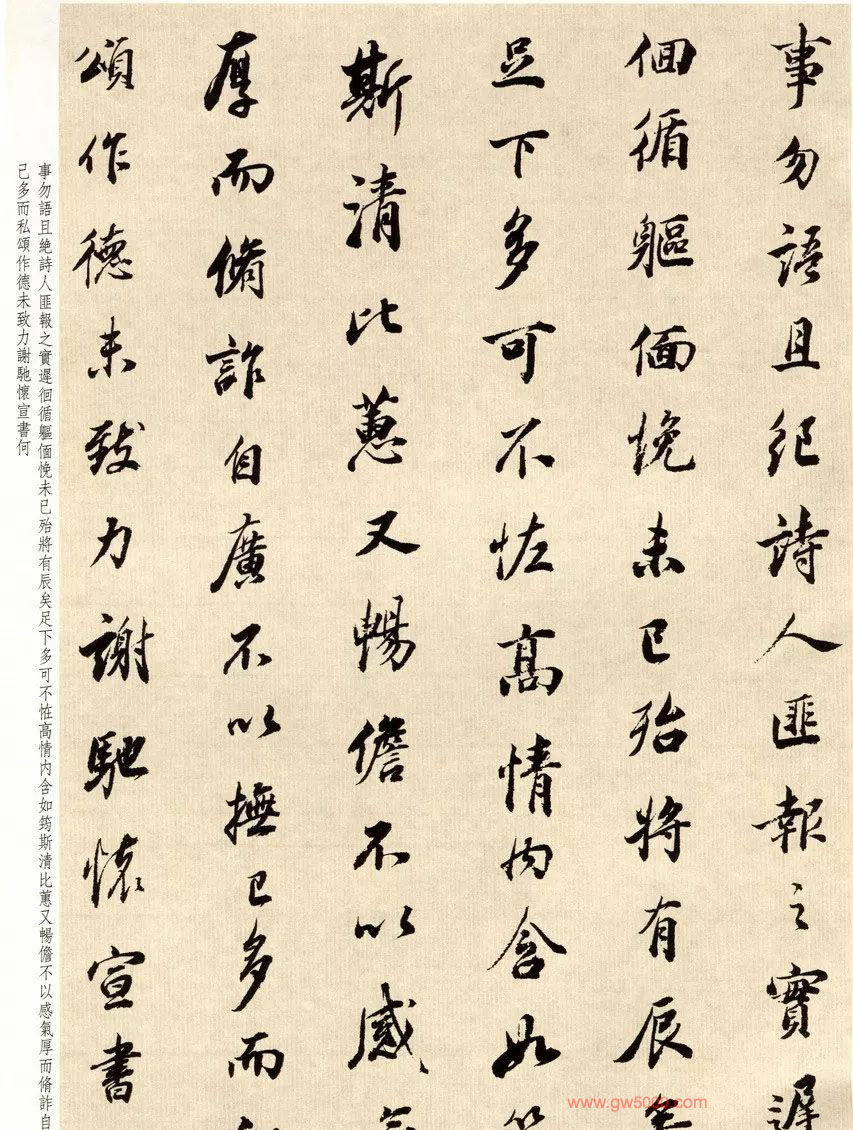 事勿語且絶詩人匪報之實遲
佪循軀偭悗未已殆將有辰矣
足下多可不恠高情内含如筠
斯清比蕙又暢儋不以感氣
厚而脩詐自廣不以撫已多而私
頌作德未致力謝馳懷宣書
事勿語且絶詩人匪報之實遲徊循軀偭悗未已殆將有辰矣足下多可不恠高情内含如筠斯清比蕙又暢儋不以感氣厚而脩詐自
己多而私頌作德未致力謝馳懷宣書何
www.gw500j.com